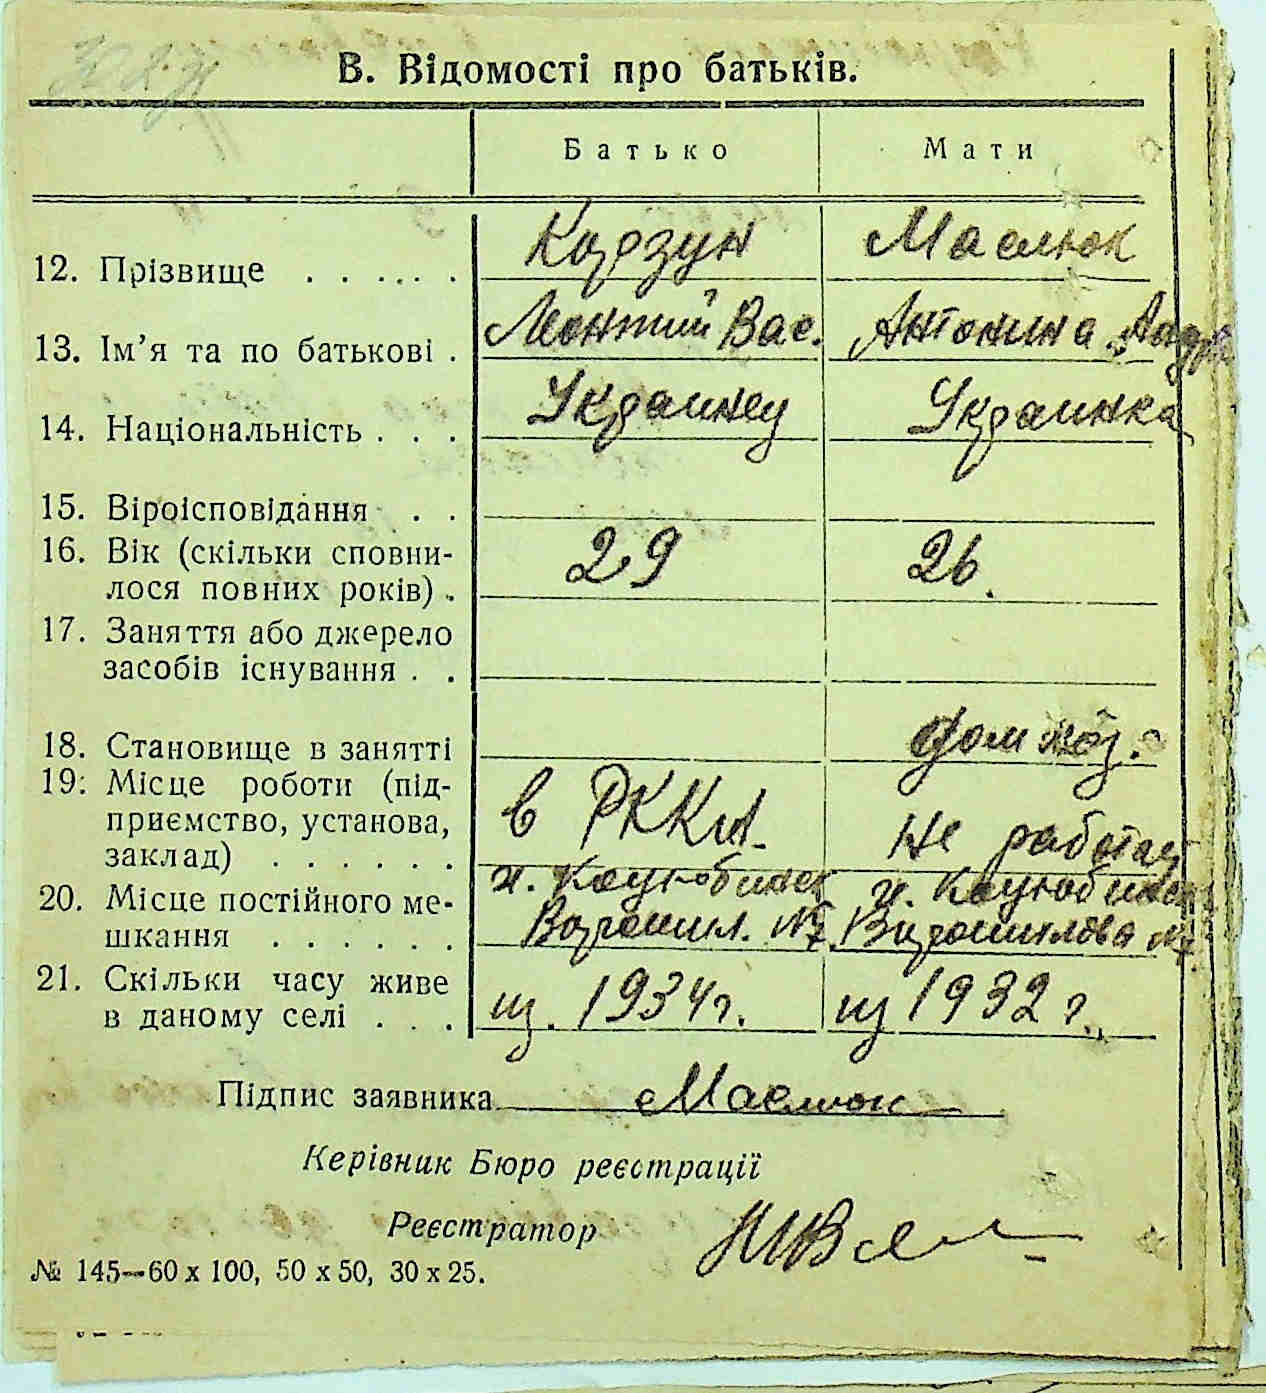 В. Відомості про батьків.
Батько Мати
12. Прізвище . . . . . . Корзун Маслюк
13. Ім’я та по батькові . Леонтий Вас. Антонина Андр
14. Національність . . . Украинец Украинка
15. Віроісповідання . .
16. Вік (скільки сповни- 29 26.
лося повних років) .
17. Заняття або джерело
засобів існування . .
18. Становище в занятті дом хоз.
19. Місце роботи (під- в РККА.
приємство, установа, не работает
заклад) . . . . . .
20. Місце постійного ме- п. Коцюбинск п. Коцюбинск
шкання . . . . . . Ворошил. №7 Ворошилова №7
21. Скільки часу живе
в даному селі . . . из. 1934 г. из 1932 г.
Підпис заявника Маслюк
Керівник Бюро реєстрації
Реєстратор
№ 145—60 x 100, 50 x 50, 30 x 25.